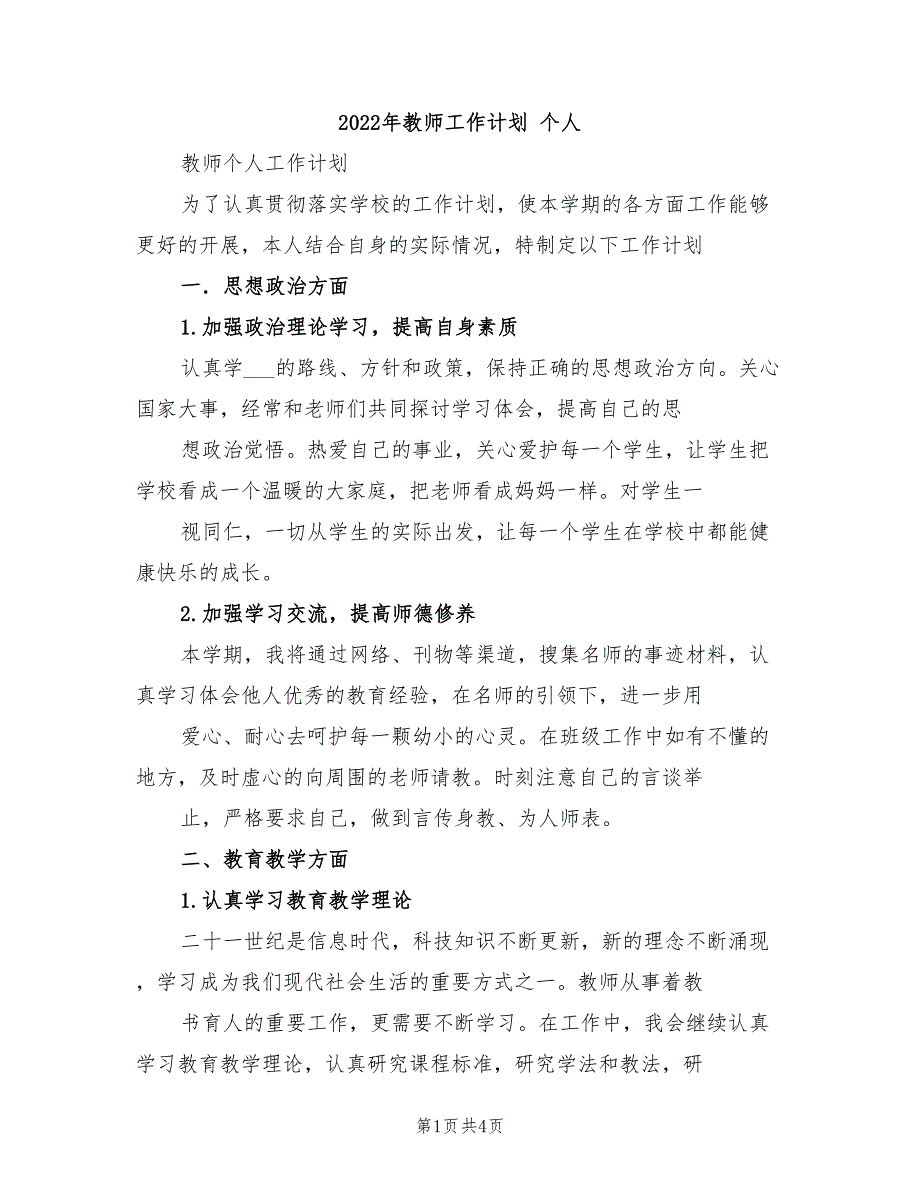 2022年教师工作计划 个人
教师个人工作计划
为了认真贯彻落实学校的工作计划，使本学期的各方面工作能够
更好的开展，本人结合自身的实际情况，特制定以下工作计划
一．思想政治方面
1.加强政治理论学习，提高自身素质
认真学___的路线、方针和政策，保持正确的思想政治方向。关心
国家大事，经常和老师们共同探讨学习体会，提高自己的思
想政治觉悟。热爱自己的事业，关心爱护每一个学生，让学生把
学校看成一个温暖的大家庭，把老师看成妈妈一样。对学生一
视同仁，一切从学生的实际出发，让每一个学生在学校中都能健
康快乐的成长。
2.加强学习交流，提高师德修养
本学期，我将通过网络、刊物等渠道，搜集名师的事迹材料，认
真学习体会他人优秀的教育经验，在名师的引领下，进一步用
爱心、耐心去呵护每一颗幼小的心灵。在班级工作中如有不懂的
地方，及时虚心的向周围的老师请教。时刻注意自己的言谈举
止，严格要求自己，做到言传身教、为人师表。
二、教育教学方面
1.认真学习教育教学理论
二十一世纪是信息时代，科技知识不断更新，新的理念不断涌现
，学习成为我们现代社会生活的重要方式之一。教师从事着教
书育人的重要工作，更需要不断学习。在工作中，我会继续认真
学习教育教学理论，认真研究课程标准，研究学法和教法，研
第1页共4页